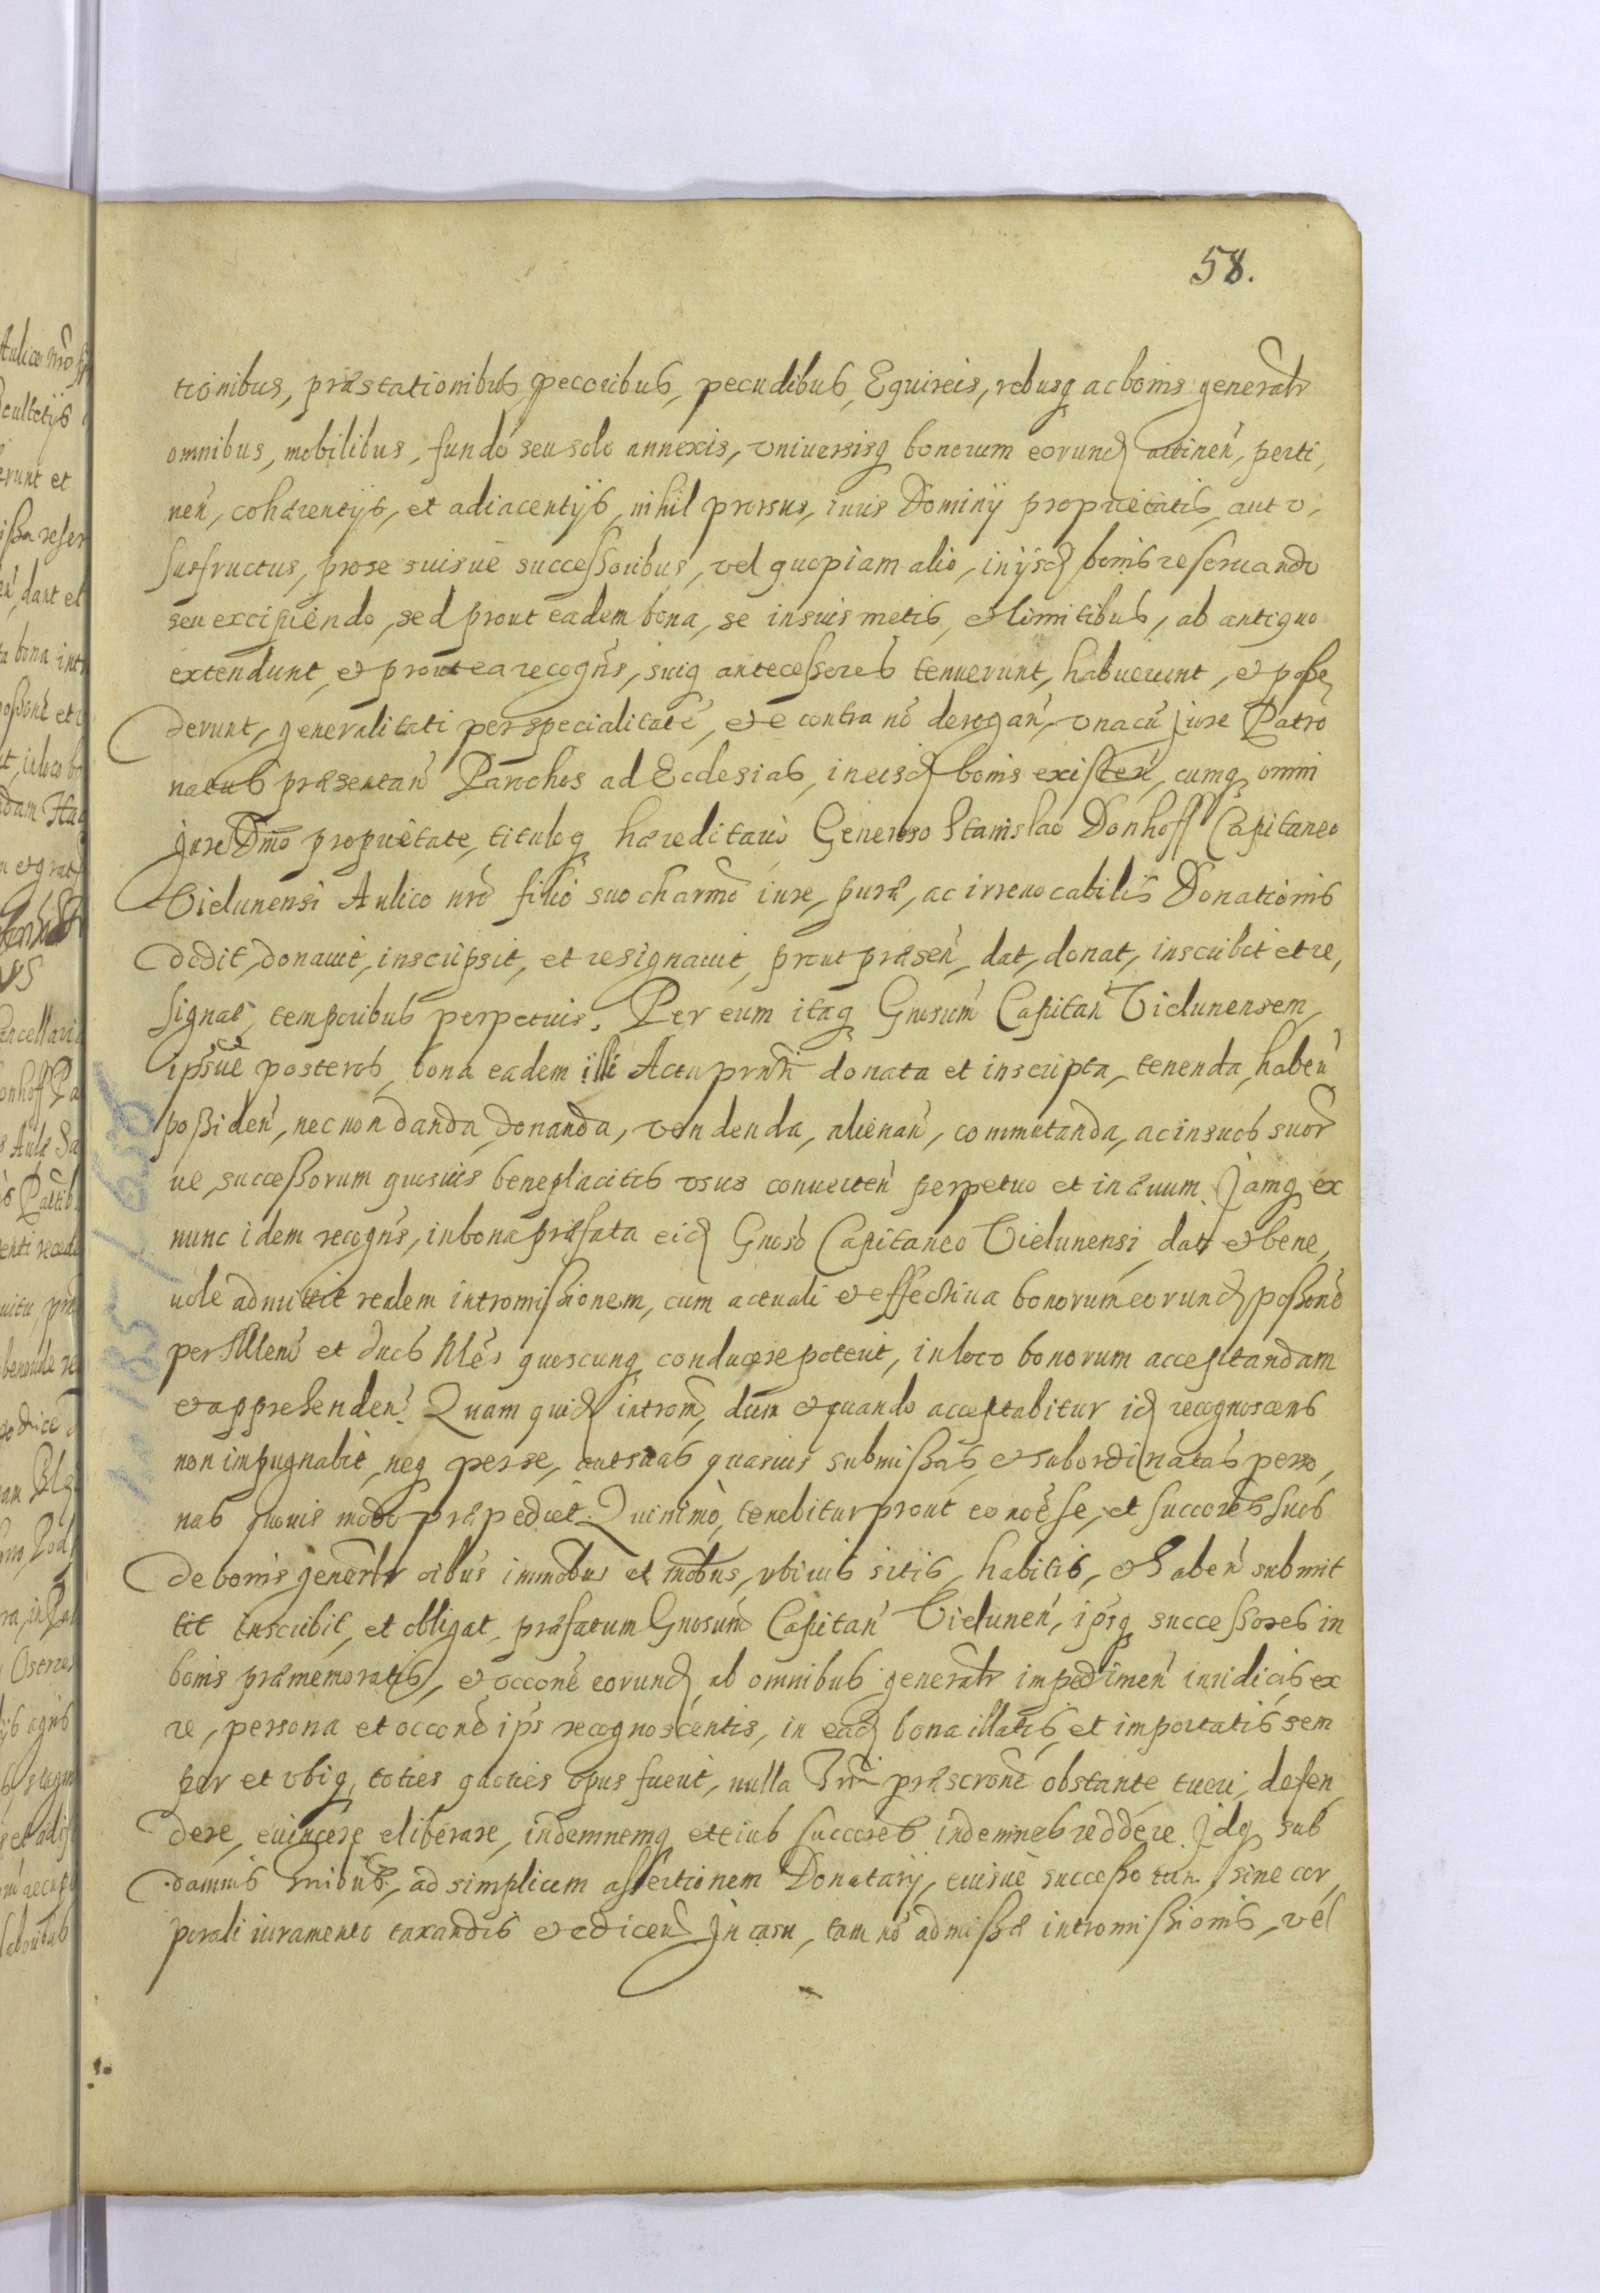 58.
tionibus, præstationibus, pecoribus, pecudibus, Equireis, rebusq ac bonis generalr
omnibus, mobilibus, fundo seu solo annexis, vniuersisq bonorum eorund attinen, perti,
nen, cohærentijs, et adiacentijs, nihil prorsus, iuris Dominij proprietatis, aut v,
susfructus, pro se suisue successoribus, vel quopiam alio, in ijsd bonis reseruando
seu excipiendo, sed prout eadem bona, se in suis metis, et limitibus, ab antiquo
extendunt, et prout ea recogns, suiq antecessores tenuerunt, habuerunt, et posse,
derunt, generalitati per specialitate, et e contra no derogan, vna cu jure Patro
natus præsentan Parochos ad Ecclesias, in eisd bonis existen, cumq omni
jure Dmo proprietate, tituloq hæreditario Generoso Stanislao Donhoff Capitaneo
Vielunensi Aulico nro filio suo charmo iure, puræ, ac irreuocabilis Donationis
dedit, donauit, inscripsit, et resignauit, prout præsen, dat, donat, inscribit et re,
signat, temporibus perpetuis. Per eum itaq Gnosum Capitan Vielunensem,
ipsiusve posteros, bona eadem illi Actu prnti donata et inscripta, tenenda, haben
possiden, nec non danda, donanda, vendenda, alienan, commutanda, ac in suos suor
ue, successorum quosuis beneplacitos vsus conuerten perpetuo et in æuum. Jamq ex
nunc idem recogns, in bona præfata eid Gnoso Capitaneo Vielunensi dat et bene,
uole admittit realem intromissionem, cum actuali et effectiua bonorum eorund possone
per Mlem et duos Nles quoscunq conducere poterit, in loco bonorum acceptandam
et apprehenden. Quam quid introm, dum et quando acceptabitur id recognoscens
non impugnabit, neq per se, aut suas quasuis submissas, et subordinatas perso,
nas quouis modo præpediet. Quinimo, tenebitur prout eo noe se, et succores suos
de bonis generalr oibus immobus et mobus, vbiuis sitis, habitis, et haben submit
tit inscribit, et obligat, præfatum Gnosum Capitan Vielunen, ipsq successores in
bonis præmemoratis, et occone eorund, ab omnibus generalr impedimen iuridicis ex
re, persona et occone ips recognoscentis, in ead bona illatis, et importatis, sem
per et vbiq, toties quoties opus fuerit, nulla præscrone obstante, tueri, defen,
dere, euincere, eliberare, indemnemq et eius succores indemnes reddere. Idq sub
damnis ad simplicem assertionem Donatarij, eiusue successorum, sine cor,
porali iuramento taxandis et edicen. In casu, tam no admissæ intromissionis, vel